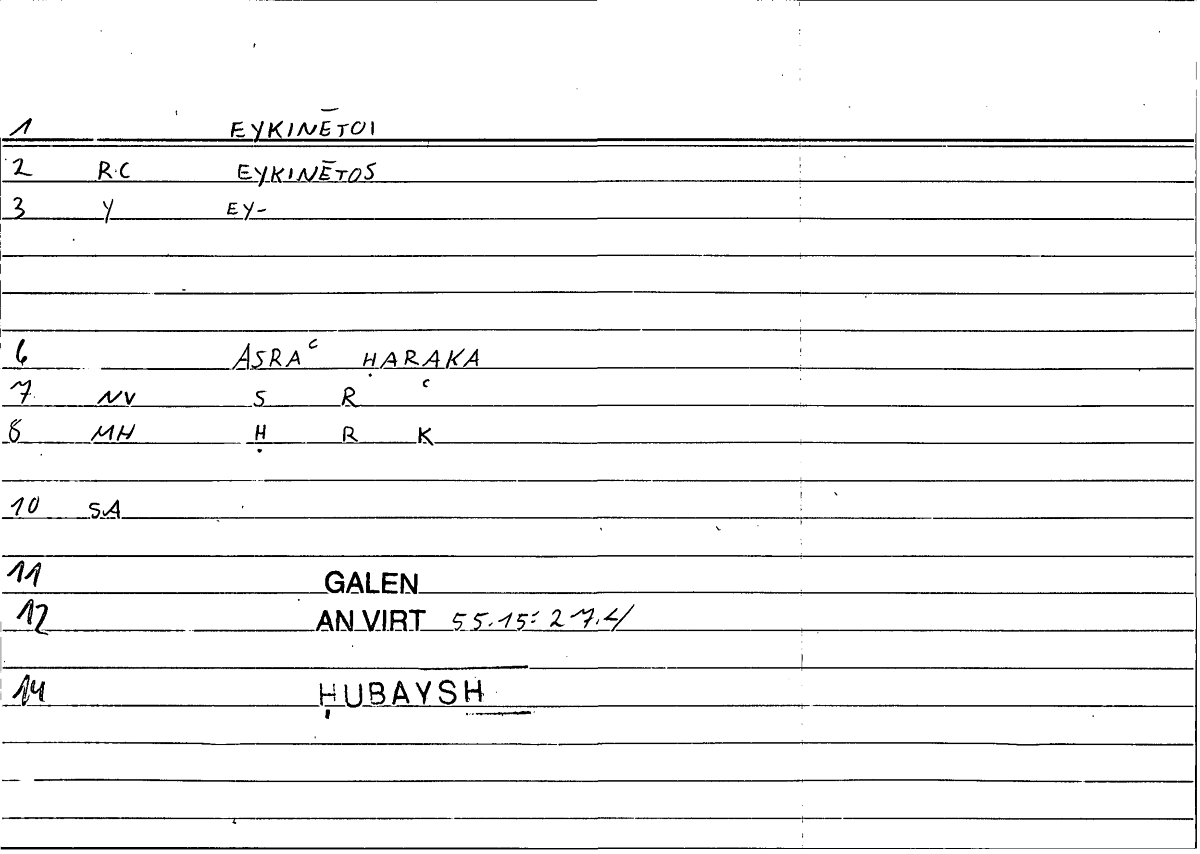 1 EYKINĒTOI
2 R.C EYKINĒTOS
3 Y EY-
6 ASRAᶜ ḤARAKA
7 NV S R ᶜ
8 MH Ḥ R K
10 SA
11 GALEN
12 AN VIRT 55.15: 27.4
14 ḤUBAYSH